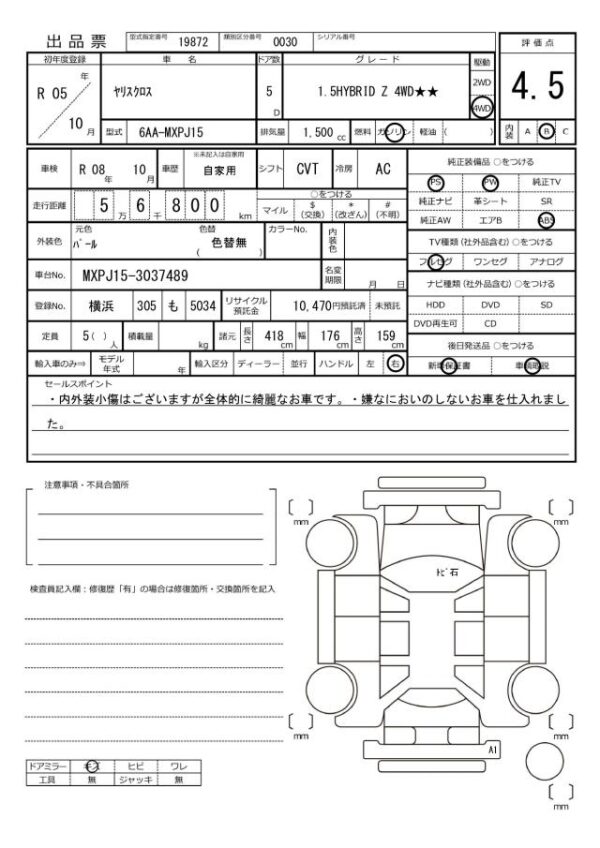 出品票 型式指定番号 19872 類別区分番号 0030 シリアル番号
初年度登録 車名 ドア数 グレード 駆動 評価点
R 05 年 10 月 ヤリスクロス 5 D 1.5HYBRID Z 4WD★★ 2WD 4WD 4.5
型式 6AA-MXPJ15 排気量 1,500 cc 燃料 ガソリン 軽油 ( ) 内装 A B C
車検 R 08 年 10 月 車歴 ※未記入は自家用 自家用 シフト CVT 冷房 AC
走行距離 5 万 6 千 8 0 0 km ○をつける マイル $(交換) *(改ざん) #(不明)
外装色 元色 パール 色替 色替無 ( ) カラーNo. 内装色
車台No. MXPJ15-3037489 名変期限 月 日
登録No. 横浜 305 も 5034 リサイクル預託金 10,470円預託済 未預託
定員 5 ( ) 人 積載量 kg 諸元 長さ 418 cm 幅 176 cm 高さ 159 cm
輸入車のみ⇒ モデル年式 年 輸入区分 ディーラー 並行 ハンドル 左 右
純正装備品 ○をつける
PS PW 純正TV
純正ナビ 革シート SR
純正AW エアB ABS
TV種類 (社外品含む) ○をつける
フルセグ ワンセグ アナログ
ナビ種類 (社外品含む) ○をつける
HDD DVD SD
DVD再生可 CD
後日発送品 ○をつける
新車保証書 車輌取説
セールスポイント
・内外装小傷はございますが全体的に綺麗なお車です。・嫌なにおいのしないお車を仕入れまし
た。
注意事項・不具合箇所
検査員記入欄：修復歴「有」の場合は修復箇所・交換箇所を記入
ドアミラー キズ ヒビ ワレ
工具 無 ジャッキ 無
〔 〕 mm
〔 〕 mm
トビ石
〔 〕 mm
〔 〕 mm
A1
〔 〕 mm